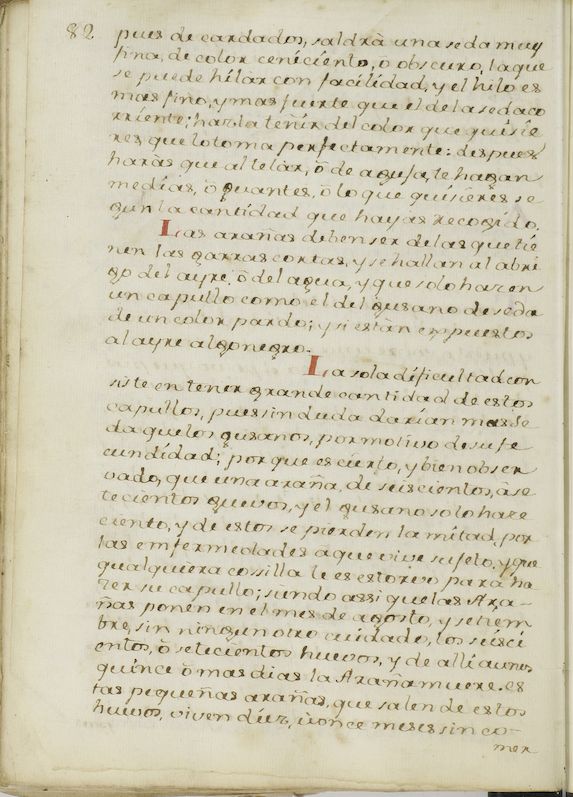 82
pues de cardados, saldrà una seda muy
fina, de color ceniciento, ò obscuro, la que
se puede hilàr con facilidad, y el hilo es
mas fino, y mas fuerte que el de la seda co
rriente; harla teñir del color que quisie
res que lo toma perfectamente: despues
haràs que al telàr, ò de aguja, te hagan
medias, ò guantes, ò lo que quisieres se
gun la cantidad que hayas recogido.
Las arañas deben ser de las que tie
nen las garras cortas, y se hallan al abri
go del ayre, ò del agua, y que solo hacen
un capullo como el del gusano de seda
de un color pardo; y si estàn expuestos
al ayre algo negro.
La sola dificultad con
siste en tener grande cantidad de estos
capullos, pues sin duda darian mas se
da que los gusanos, por motivo de su fe
cundidad; porque es cierto, y bien obser
vado, que una araña, de seiscientos, à se
tecientos guevos, y el gusano solo hace
ciento, y de estos se pierden la mitad, por
las enfermedades a que vive sujeto, y que
qualquiera cosilla le es estorvo para ha
zer su capullo; siendo assi que las Ara-
ñas ponen en el mes de agosto, y setiem
bre, sin ningun otro cuidado, los seisci
entos, ò setecientos huevos, y de alli a unos
quince ò mas dias la Araña muere. es
tas pequeñas arañas, que salen de estos
huevos, viven diez, ù once meses sin co-
mer